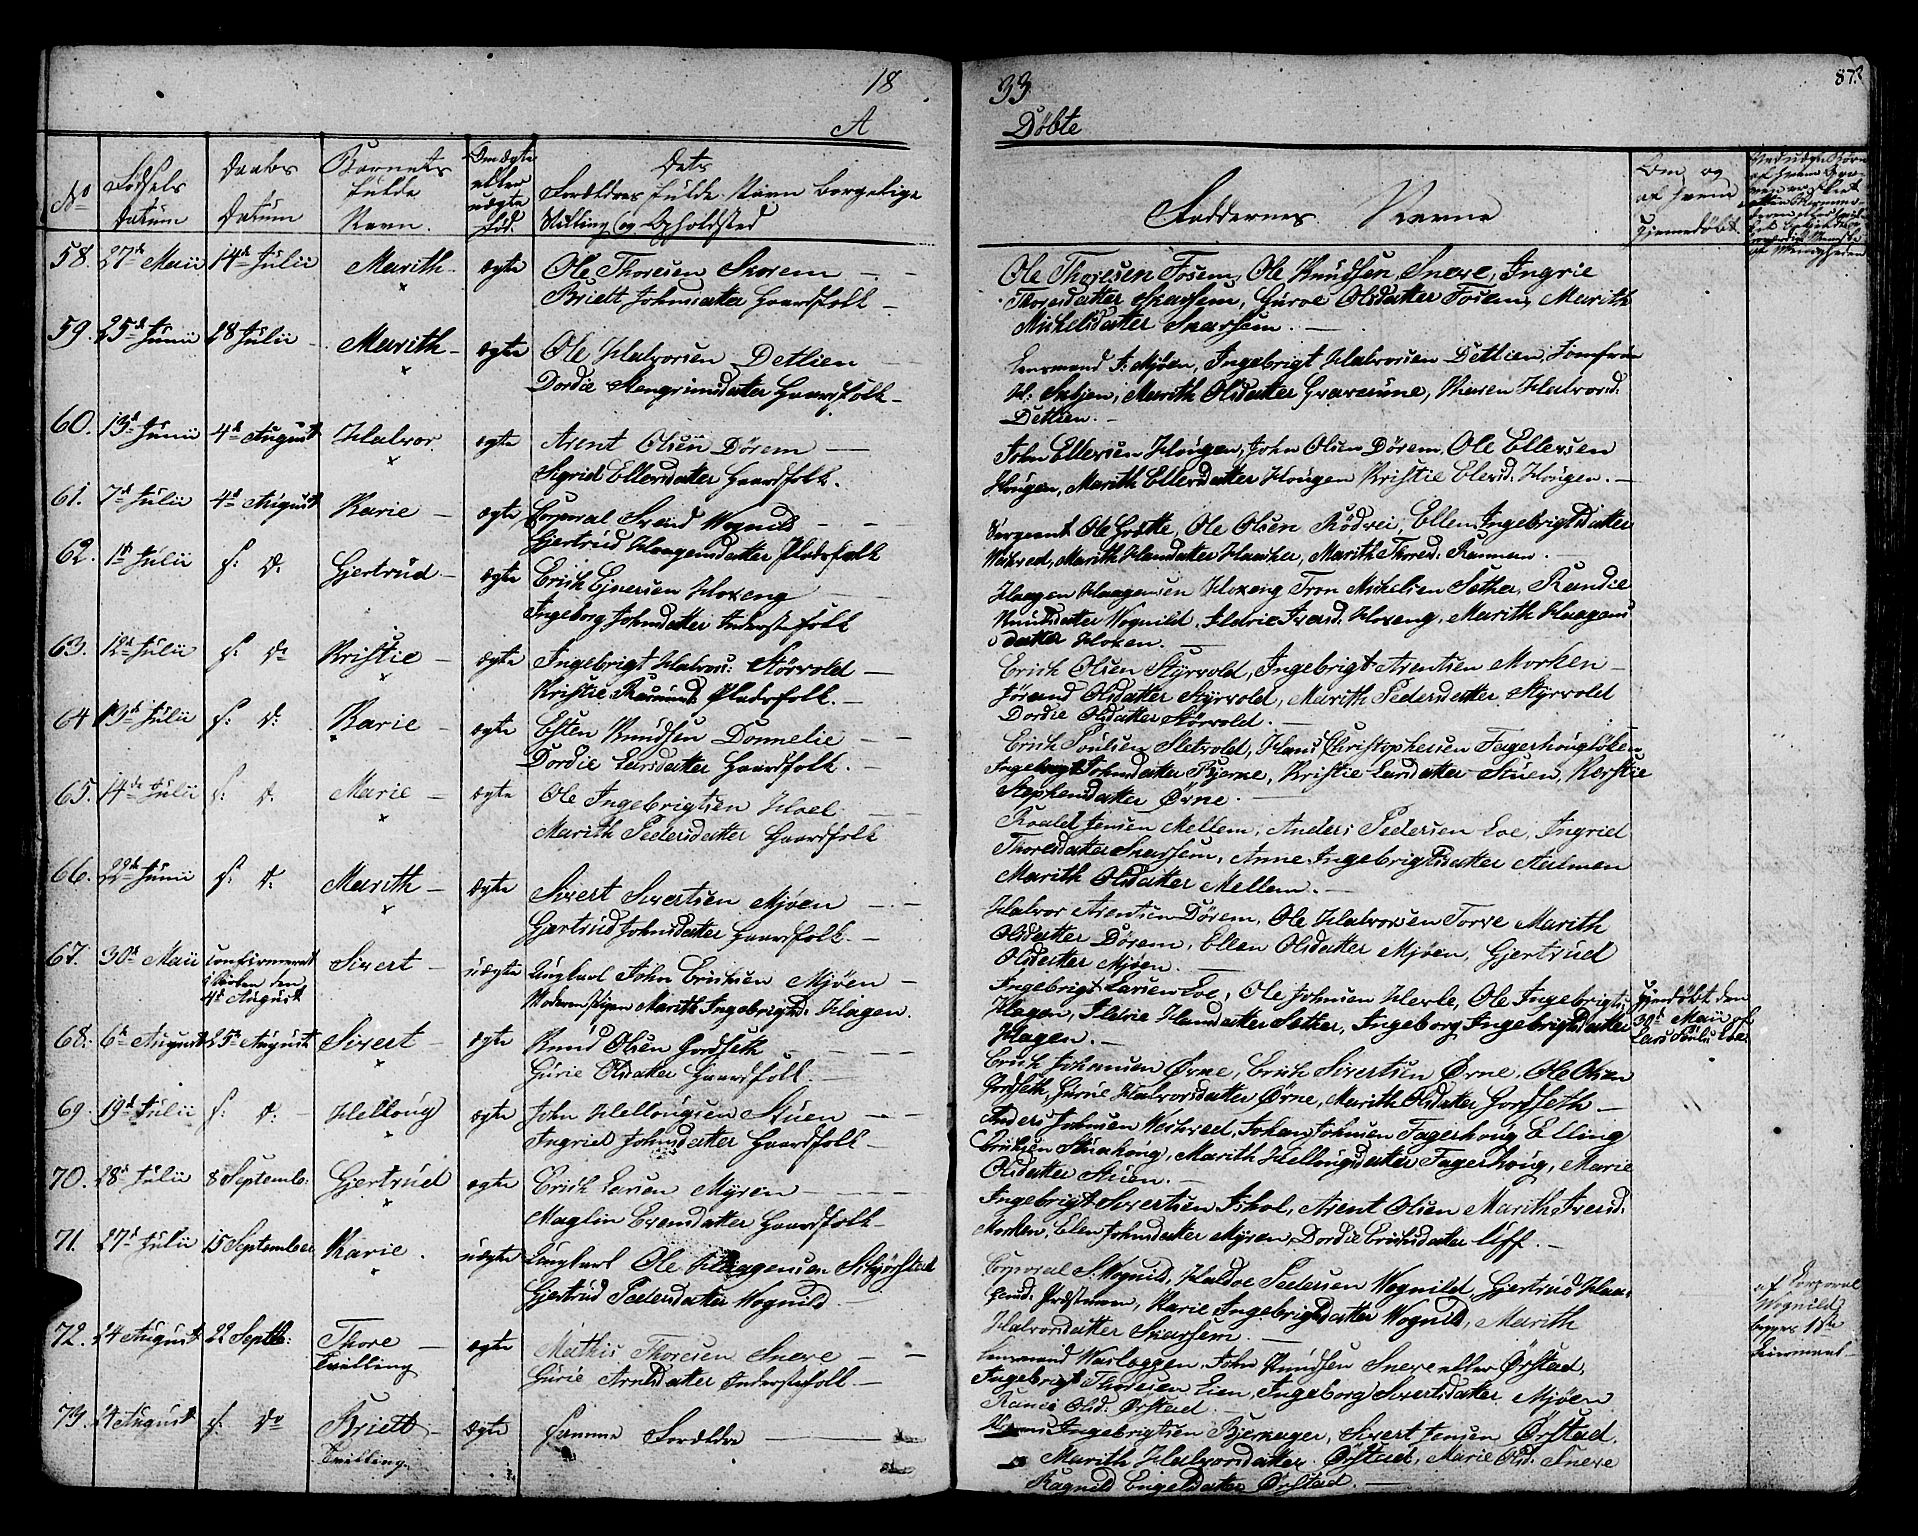 18
33
873
A
Döbte
No
Födsels
Datum
Daabs
Datum
Barnets
fulde
Navn.
Om ægte
eller
uægte
fød.
Dets
Forældres fulde Navn borgelige
Stilling og Opholdsted
Faddernes Navne
Om og
af hvem
hjemmedöbt
58. 27de Maii 14de Julii Marith ægte Ole Thoresen Skorem
Briett Johnsdatter Gaardfolk
Ole Thoresen Fosem, Ole Knudsen Sneve, Ingrie
Thoresdatter Skarsem, Guroe Olsdatter Fosem, Marith
Mickelsdatter Skarsem.
59. 25de Junii 28 Julii Marith ægte Ole Halvorsen Detlien
Dordie Stengrimsdatter Gaardfolk
Lensmand J: Mjöen, Ingebrigt Halvorsen Detlien, Jomfrue
Marith Olsdatter Graveiune, Karen Halvorsd.
Detlien.
60. 13de Junii 4de August Halvor ægte Arent Olsen Dörem
Sigrid Ellersdatter Gaardfolk.
John Ellersen Hougen, John Olsen Dörem, Ole Ellersen
Hougen, Marith Ellersdatter Hougen Kristie Elersd. Hougen.
61. 7de Julii 4de August Karie ægte Corporal Svend Wognild
Gjertrud Haagensdatter Pladsfolk
Sergeant Ole Grötte, Ole Olsen Rödvei, Ellen Ingebrigtsdatter
Weihred, Marith Hansdatter Haaker, Marith Thoresd. Rannem.
62. 1de Julii s: D: Gjertrud ægte Erich Ejversen Hoxeng
Ingeborg Johnsdatter Inderstefolk
Haagen Haagensen Hoxeng Tron Mickelsen Sæther, Randie
Knudsdatter Wognild, Ildrie Iversd. Hoxeng, Marith Haagens
datter Hoxen.
63. 12de Julii s: D: Kristie ægte Ingebrigt Halvors: Störvold
Kristie Pladsfolk.
Erich Olsen Styrvold, Ingebrigt Arentsen Morken
Jörand Olsdatter Styrvold, Marith Pedersdatter Styrvold
Dordie Olsdatter Störvold.
64 13de Julii s: D: Karie ægte Esten Knudsen Donnelie
Dordie Larsdatter Gaardfolk.
Erich Poulsen Sletvold, Hans Christophersen Fagerhougløken
Ingebregt Johnsdatter Bjerne, Kristie Larsdatter Stuen, Kerstie
Stephensdatter Ørne.
65. 14de Julii s: D: Marie ægte Ole Ingebrigtsen Hoel
Marith Pedersdatter Gaardfolk
Roald Jensen Mellem, Anders Pedersen Loe, Ingried
Thoresdatter Skarsem, Anne Ingebrigtsdatter Aalmen
Marith Olsdatter Mellem.
66. 22de Junii s: D: Marith ægte Sivert Sivertsen Mjöen
Gjertrud Johnsdatter Gaardfolk.
Halvor Arentsen Dörem, Ole Halvorsen Torve Marith
Olsdatter Dörem, Ellen Olsdatter Mjöen, Gjertrud
Olsdatter Mjöen.
67. 30de Maii Confirmeret
i Kirken den
4de August Sivert uægte Ungkarl John Ericksen Mjöen
Moderen Pigen Marith Ingebrigtsd. Hagen.
Ingebrigt Larsen Loe, Ole Johnsen Herle, Ole Ingebrigts:
Hagen, Ildrie Hansdatter Sæther, Ingeborg Ingebrigtsdatter
Hagen.
hjemdöbt den
30de Maii af
Lars Pouls: Loe.
68. 6de August 25de August Sivert ægte Knud Olsen Gordseth
Gurie Olsdatter Gaardfolk.
Erich Johansen Ørne, Erich Sivertsen Ørne, Ole Olsen
Gordseth, Gurue Halvorsdatter Ørne, Marith Olsdatter Gordseth
69. 19de Julii s: D: Helloug ægte John Hellougsen Stuen
Ingried Johnsdatter Gaardfolk
Anders Johnsen Weihred, Johan Johnsen Fagerhoug Elling
Ericksen Stuahoug, Marith Hellougsdatter Fagerhoug, Marie
Olsdatter Stuen.
70. 28de Julii 8 Septemb: Gjertrud ægte Erich Larsen Myren
Maglin Evensdatter Gaardfolk
Ingebrigt Sivertsen Ishol, Arent Olsen Marith Iversd.
Morken, Elen Johnsdatter Myren, Dordie Ericksdatter Uff.
71. 27de Julii 15 September Karie. uægte Ungkarl Ole Haagensen Skjörstad
Gjertrud Pedersdatter Wognild.
Corporal S: Wognild, Haldoe Pedersen Wognild, Gjertrud Haa-
gensd. Præstmoen, Karie Ingebrigtsdatter Wognild, Marith
Halvorsdatter Skarsem.
af Corporal
Wognild
begges 1ste
Leiermaal
72. 24 August 22 Septb: Thore
Tvilling ægte Mathis Thoresen Sneve
Gurie Arnesdatter Inderstefolk
Lensmand Warlöggen, John Knudsen Sneve eller Ørstad,
Ingebrigt Thoresen Lien, Ingeborg Sivertsdatter Mjöen
Rance Olsd. Ørstad.
73. 24 August s: Do Briett
Tvilling. ægte Samme Forældre
Ingebrigtsen Bjerkager, Sivert Jensen Ørstad.
Marith Halvorsdatter Ørstad, Marie Olsd. Sneve
Ragnild Engelsdatter Ørstad.